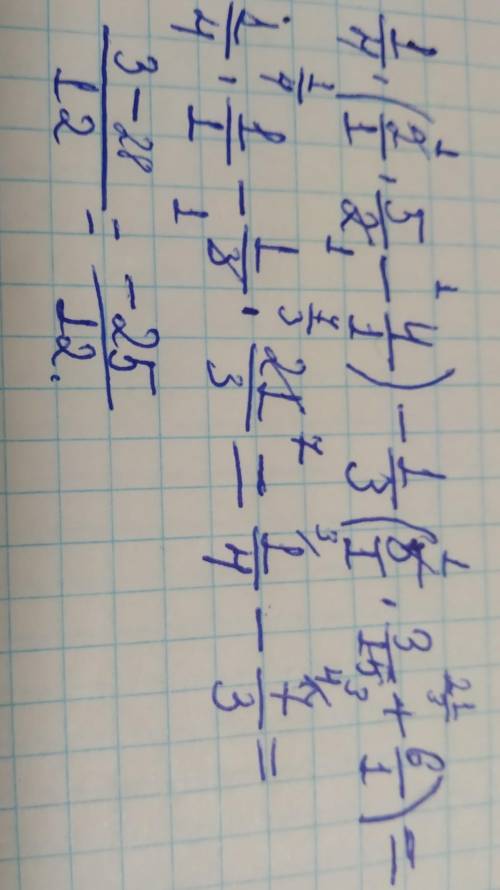 1/4 · (2/1 · 5/2 − 4/1) − 1/3 (5/1 · 3/15 + 6/1) =
1/4 · 1/1 − 1/3 · 21/3 = 1/4 − 7/3 =
3 − 28/12 = −25/12.